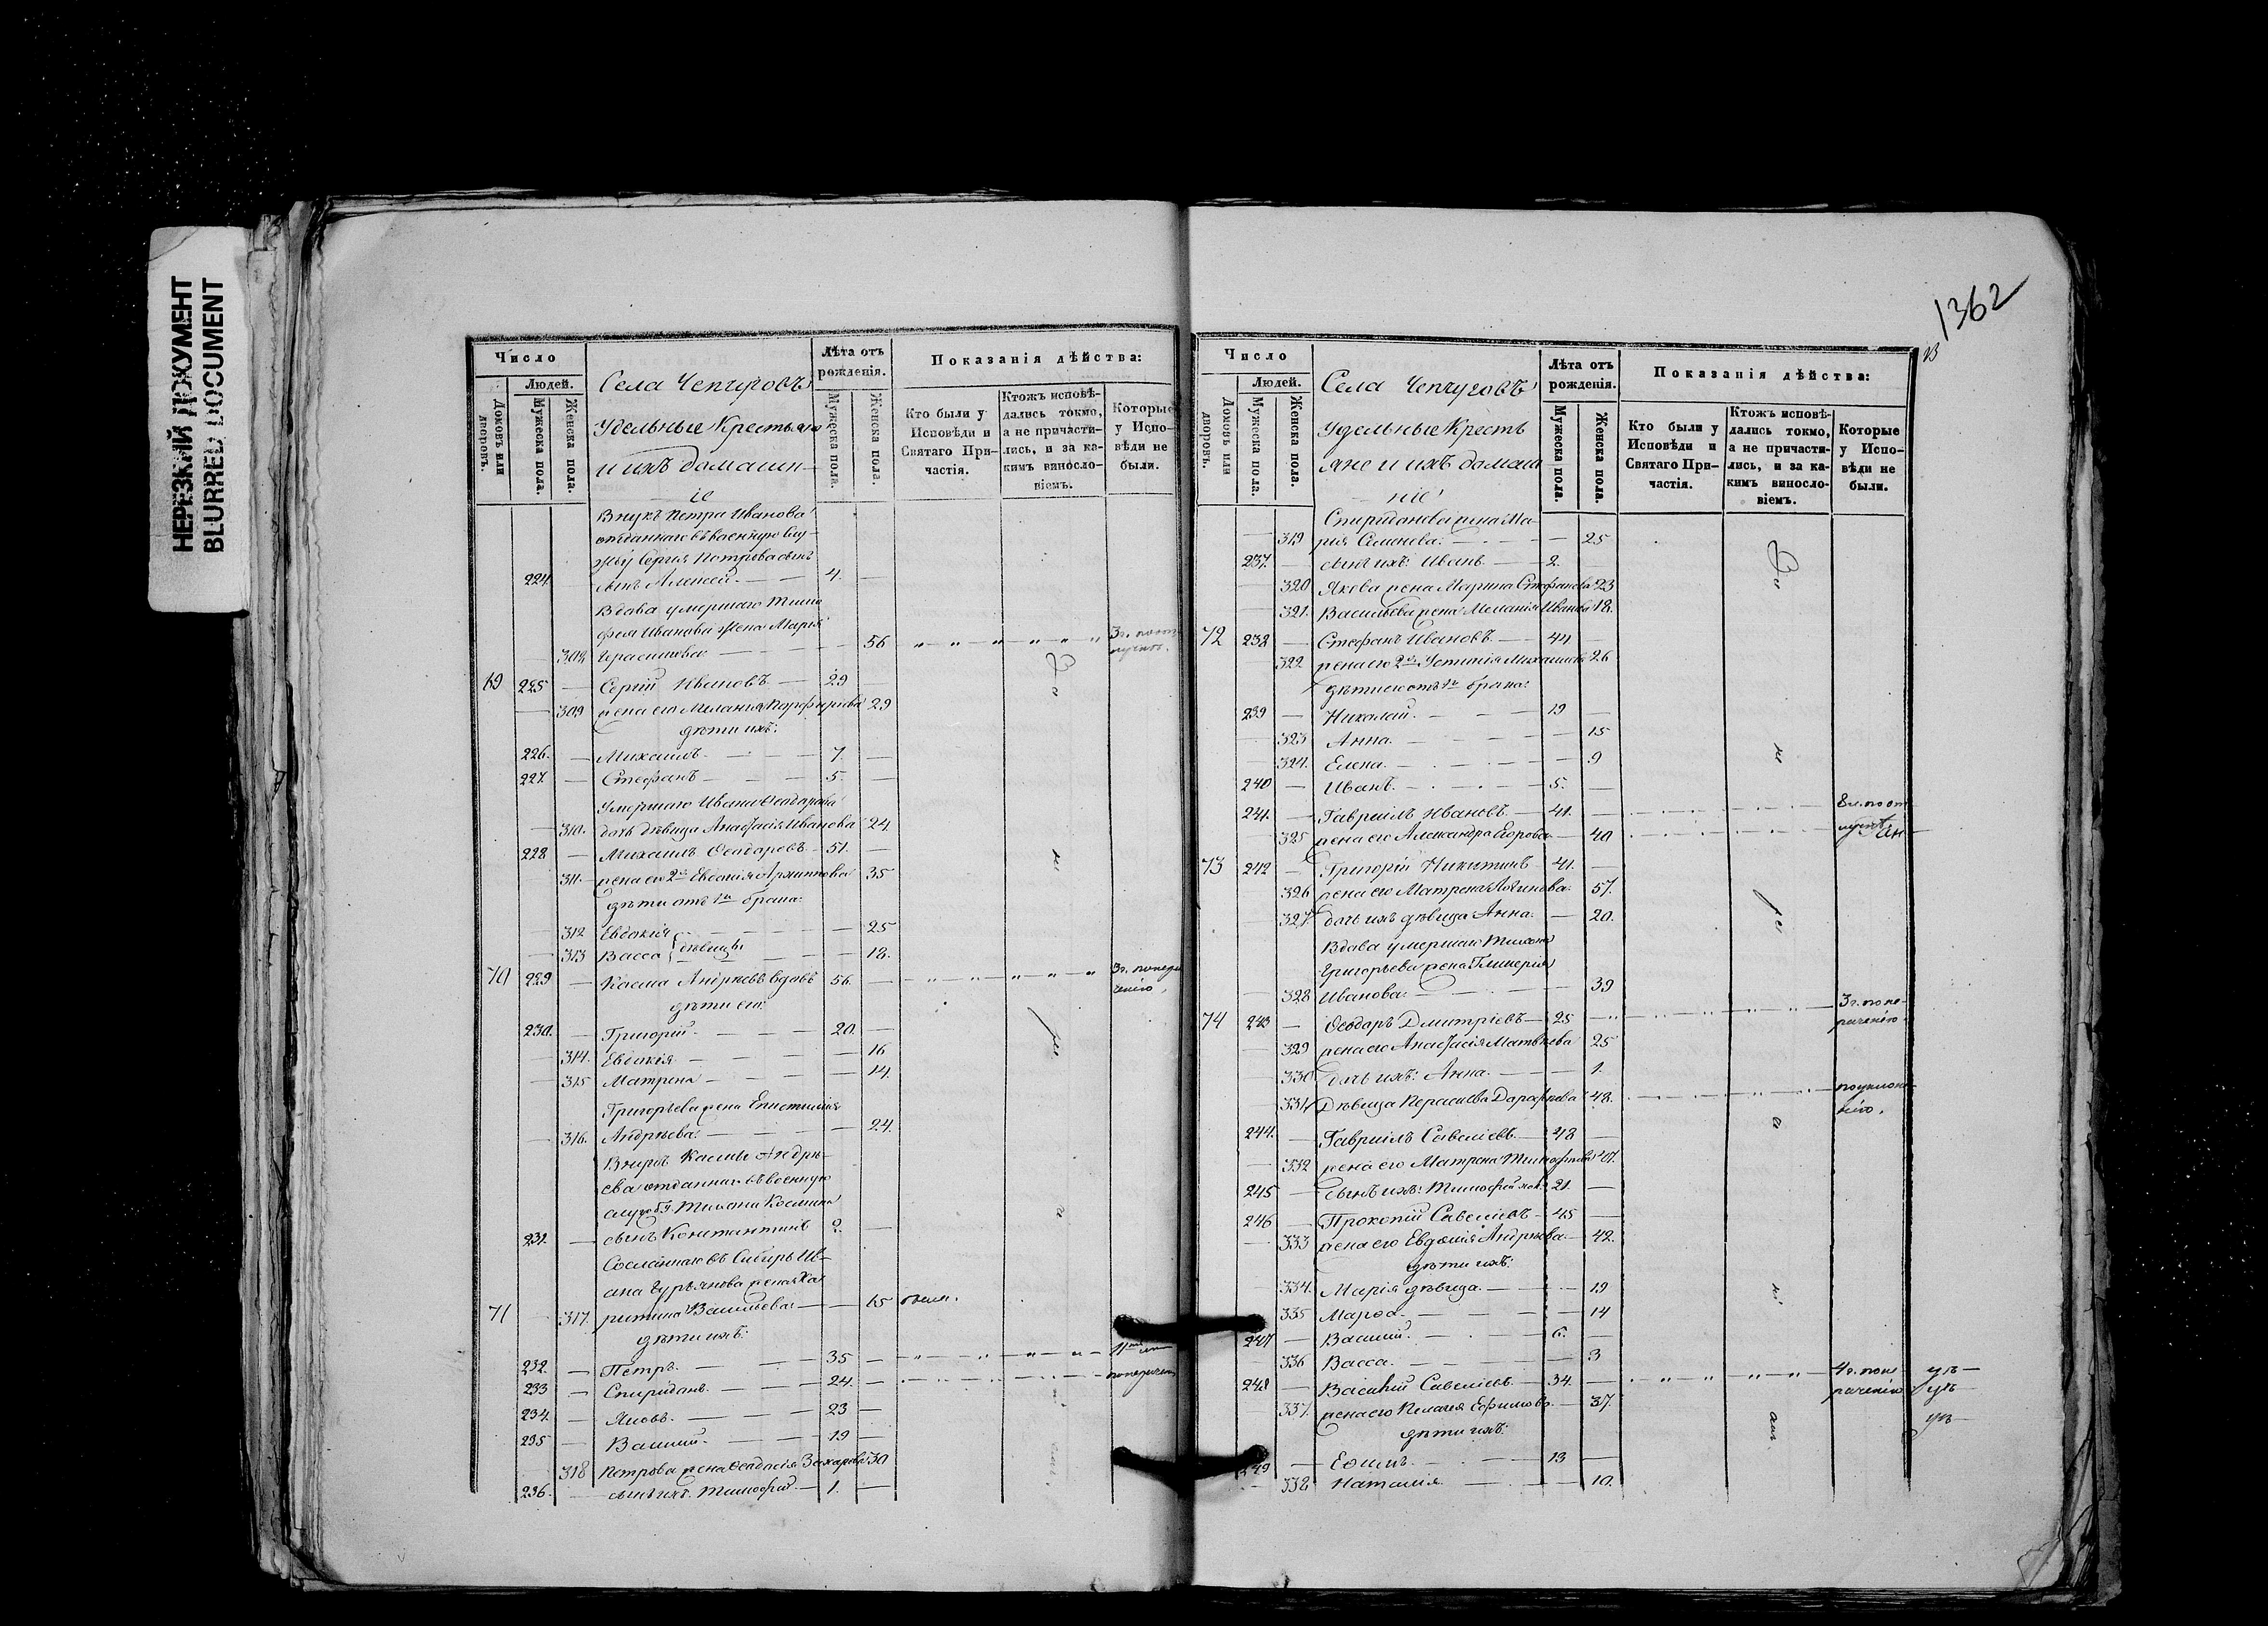 НЕРЕЗКИЙ ДОКУМЕНТ
BLURRED DOCUMENT
Число
Людей.
Домовъ или дворовъ.
Мужеска пола.
Женска пола.
Села Чепчуговъ
Удѣльные Крестьяне
и ихъ домашн-
іе
Лѣта отъ рожденія.
Мужеска пола.
Женска пола.
Показанія дѣйства:
Кто были у Исповѣди и Святаго При-частія.
Ктожъ исповѣ-дались токмо, а не причасти-лись, и за ка-кимъ виносло-віемъ.
Которые у Испо-вѣди не были.
Внукъ Петра Иванова
отданнаго въ военную слу-
жбу Сергія Петрова сынъ
224. Алексей. 4.
Вдова умершаго Тимо
фея Иванова жена Марія
308. Герасимова 56
69 225 Сергій Ивановъ. 29
309 жена его Меланія Порфирьева 29
дѣти ихъ:
226. Михаилъ 7.
227. Стефанъ 5.
Умершаго Ивана Ѳеодорова
310. дочь дѣвица Анастасія Иванова 24
228 Михаилъ Ѳеодоровъ 51.
311. жена его 2я Евдокія Архиппова 35
дѣти отъ 1го брака:
312 Евдокія 25
313 Васса дѣвицы 18.
70 229 Косма Андреевъ вдовъ 56.
дѣти его:
230. Григорій 20.
314. Евдокія 16
315 Матрена 14.
Григорьева жена
316. Андреева: 24.
Внукъ Космы Андре-
ева отданнаго въ военную
службу Тихона Космина
231. сынъ Константинъ 2.
Сосланнаго въ Сибирь Ив-
ана Гурьянова жена Ха
71 317. ритина Васильева: 65 были.
дѣти ихъ:
232. Петръ. 35
233 Спиридонъ. 24.
234. Яковъ. 23
235 Василій. 19
318 Петрова жена Ѳеодосія Захарова 30
236. сынъ ихъ Тимофей 1.
1362
Число
Людей.
Домовъ или дворовъ.
Мужеска пола.
Женска пола.
Села Чепчуговъ
Удѣльные Кресть
яне и ихъ домаш
ніе
Лѣта отъ рожденія.
Мужеска пола.
Женска пола.
Показанія дѣйства:
Кто были у Исповѣди и Святаго При-частія.
Ктожъ исповѣ-дались токмо, а не причасти-лись, и за ка-кимъ виносло-віемъ.
Которые у Испо-вѣди не были.
Спиридонова жена Ма-
319 рія Семенова: 25
237. сынъ ихъ: Иванъ. 2.
320 Якова жена Марина Стефанова 23
321. Васильева жена Меланія Иванова 18.
72 238 Стефанъ Ивановъ. 44
322 жена его 2я Устинія 26
дѣти его отъ 1го брака:
239 Николай. 19
323 Анна. 15
324. Елена. 9
240 Иванъ. 5.
241. Гавріилъ Ивановъ. 41.
325 жена его Александра Егорова 40
73 242 Григорій Никитинъ 41.
326 жена его Матрена 57.
327 дочь ихъ дѣвица Анна. 20.
Вдова умершаго Тихона
Григорьева жена Гликерія
328 Иванова: 39
74 243 Ѳеодоръ Дмитріевъ 25
329 жена его Анастасія Матвѣева 25
330 дочь ихъ: Анна. 1.
331 Дѣвица 48.
244. Гавріилъ Савеліевъ 48
332 жена его Матрена Тимофеева 47.
245 сынъ ихъ: Тимофей 21.
246 Прокопій Савеліевъ 45
333 жена его Евдокія Андреева 42.
дѣти ихъ:
334. Марія дѣвица. 19
335 Марѳа. 14
247 Василій. 6.
336 Васса. 3
248 Василій Савеліевъ 34.
337. жена его Пелагея Ефимова 37.
дѣти ихъ:
249 Ефимъ. 13
338 Наталія 10.